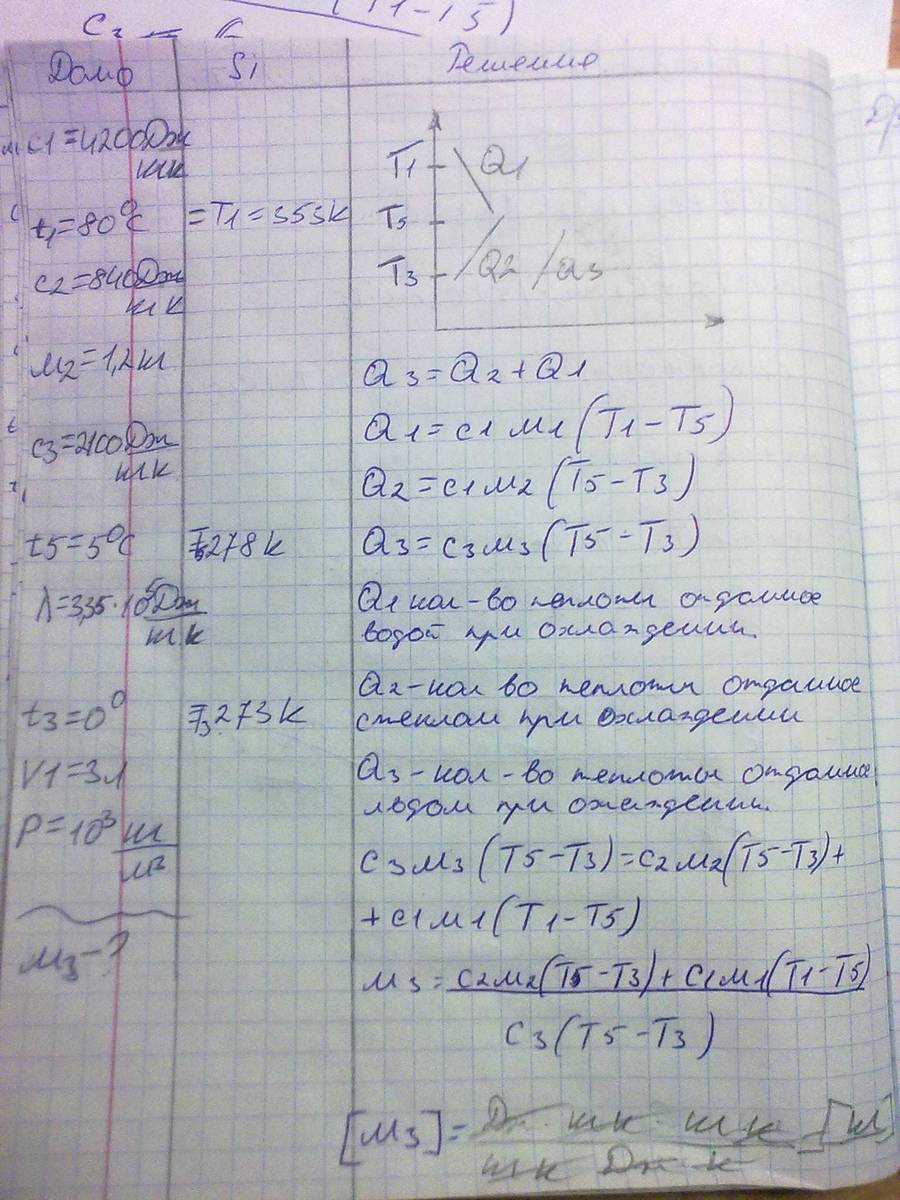 (T1-T5)
C₂ =
Дано
Si
Решение
c1=4200 Дж/кг К
t₁=80°C
=T1=353K
c2=840 Дж/кг К
м2=1,2кг
c3=2100 Дж/кг К
t5=5°C
T5=278K
λ=3,35·10⁵ Дж/кг К
t3=0°
T3=273K
V1=3л
P=10³ кг/м³
м3-?
T1
Q1
T5
T3
Q2
Q3
Q3=Q2+Q1
Q1=c1м1(T1-T5)
Q2=c1м2(T5-T3)
Q3=c3м3(T5-T3)
Q1 кол-во теплоты отданное
водой при охлаждении.
Q2-кол во теплоты отданное
стеклом при охлаждении
Q3-кол-во теплоты отданное
льдом при охлаждении.
c3м3(T5-T3)=c2м2(T5-T3)+
+c1м1(T1-T5)
м3=c2м2(T5-T3)+c1м1(T1-T5)
c3(T5-T3)
[м3]=Дж·кг К·кг К=[кг]
кг К Дж К